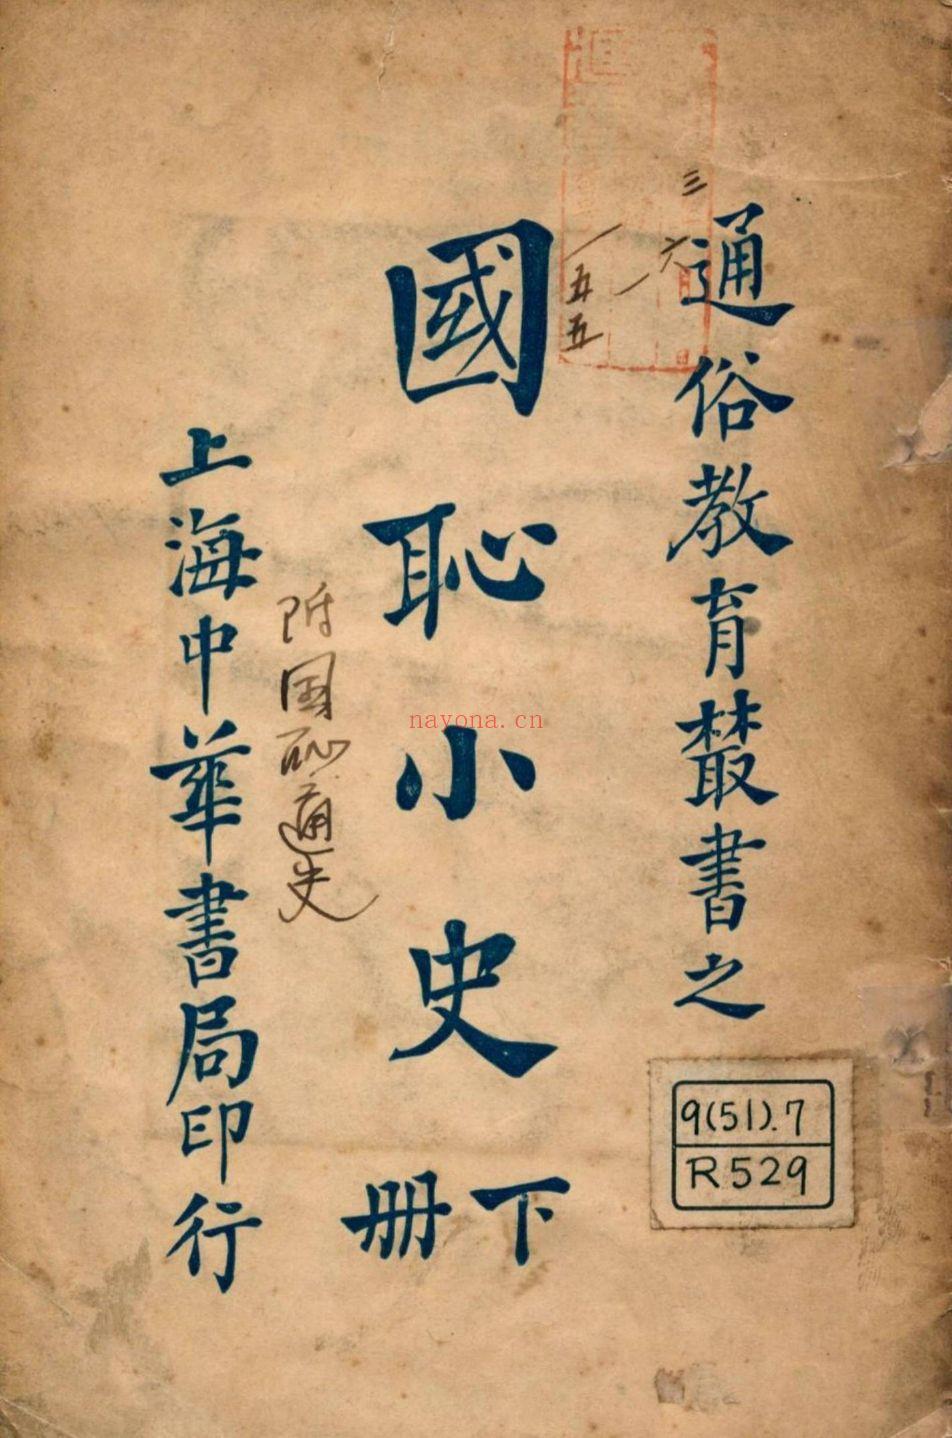 通俗教育叢書之
三
六
一
一五五
國恥小史
下冊
附国恥通史
上海中華書局印行
9(51).7
R529
nayona.cn